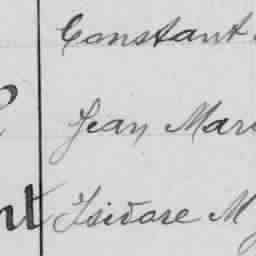 Constant
Jean Mar
nt Isidore M